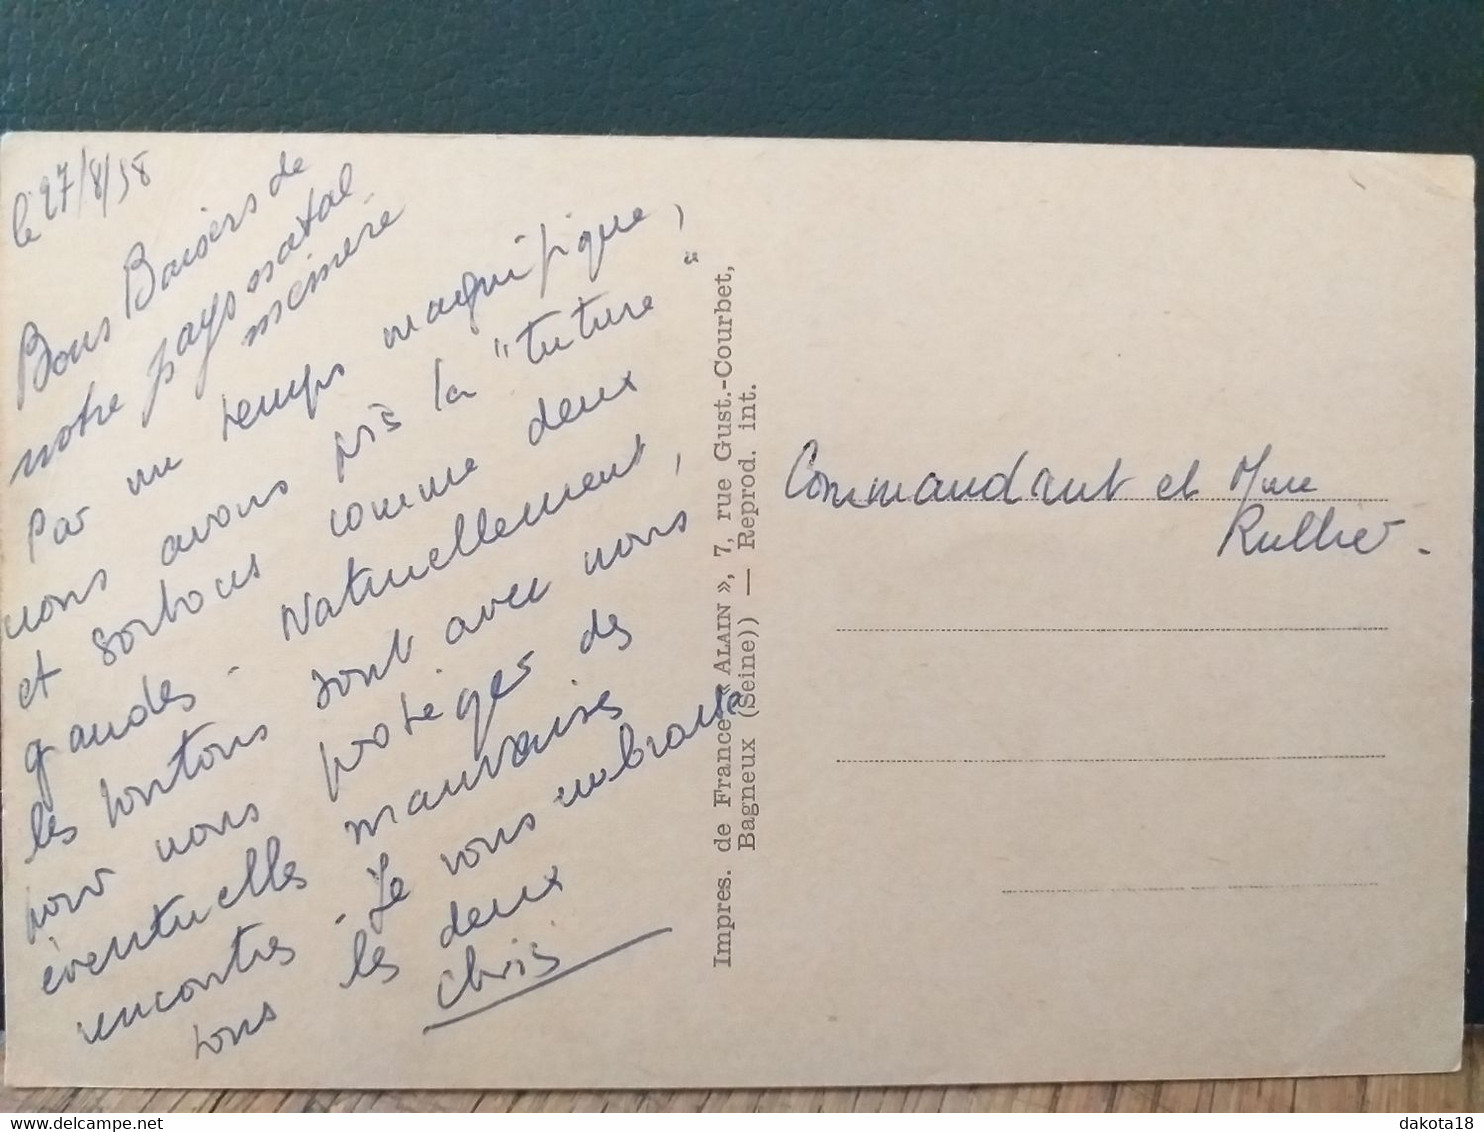 le 27/8/58
Bons Baisers de
notre pays natal
mémère
Par un temps magnifique,
nous avons pris la "tuture"
et sortons comme deux
grandes. Naturellement,
les tontons sont avec nous
pour nous protéger des
éventuelles mauvaises
rencontres. Je vous embrasse
tous les deux
Chris
Impres. de France « ALAIN », 7, rue Gust.-Courbet,
Bagneux (Seine)) — Reprod. int.
Commandant et Mme
Rullier.
dakota18